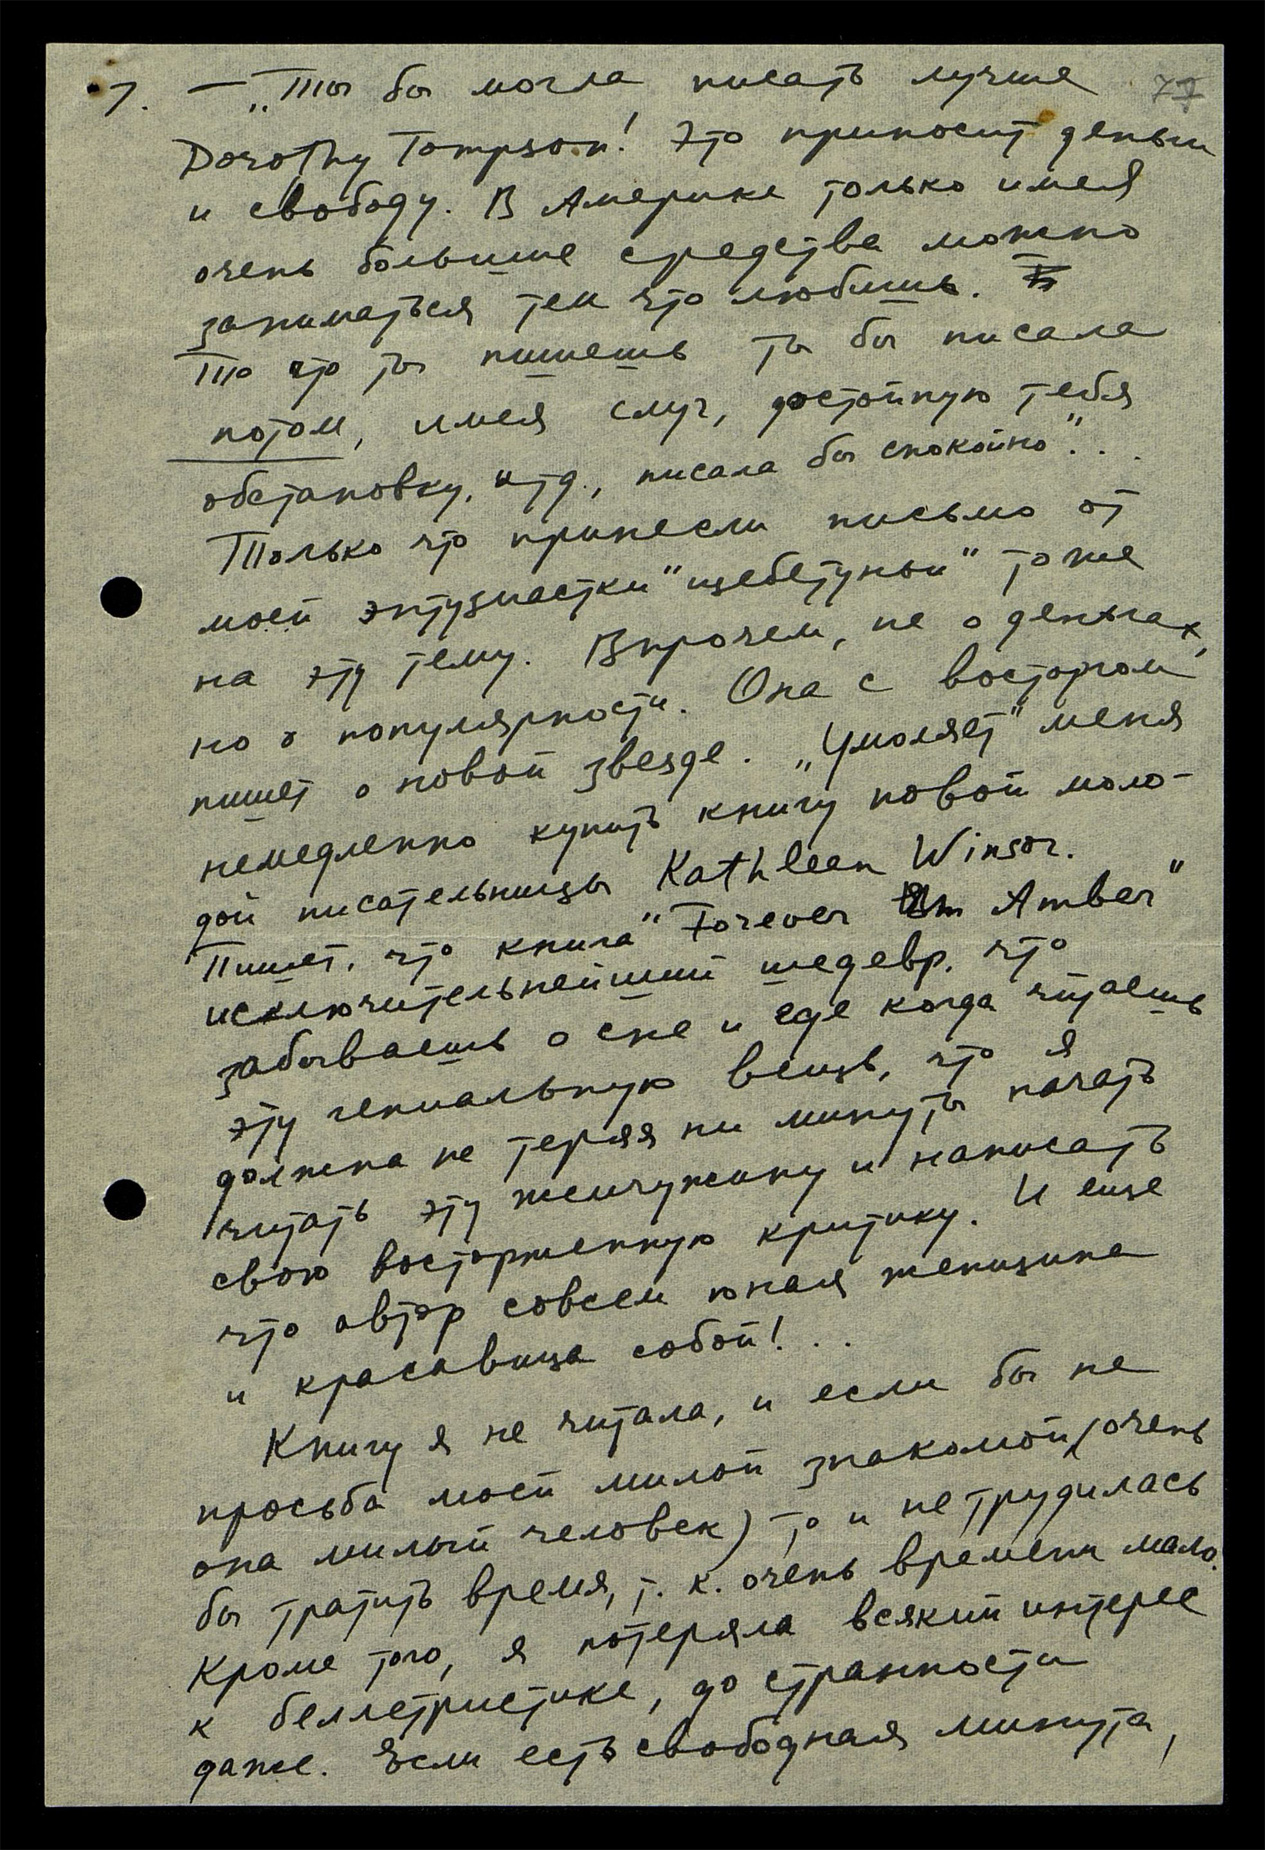 7. — „Ты бы могла писать лучше 77
Dorothy Tompson! Это приносит деньги
и свободу. В Америке только имея
очень большие средства можно
заниматься тем что любишь.
То что ты пишешь ты бы писала
потом, имея слуг, достойную тебя
обстановку, итд., писала бы спокойно"...
Только что принесли письмо от
моей энтузиастки "щебетуньи" тоже
на эту тему. Впрочем, не о деньгах,
но о популярности. Она с восторгом
пишет о новой звезде. „Умоляет" меня
немедленно купить книгу новой моло-
дой писательницы Kathleen Winsor.
Пишет, что книга "Forever Am Amber"
исключительнейший шедевр, что
забываешь о сне и еде когда читаешь
эту гениальную вещь, что я
должна не теряя ни минуты начать
читать эту жемчужину и написать
свою восторженную критику. И еще
что автор совсем юная женщина
и красавица собой!...
Книгу я не читала, и если бы не
просьба моей милой знакомой (очень
она милый человек) то и не трудилась
бы тратить время, т. к. очень времени мало.
Кроме того, я потеряла всякий интерес
к беллетристике, до странности
даже. Если есть свободная минута,